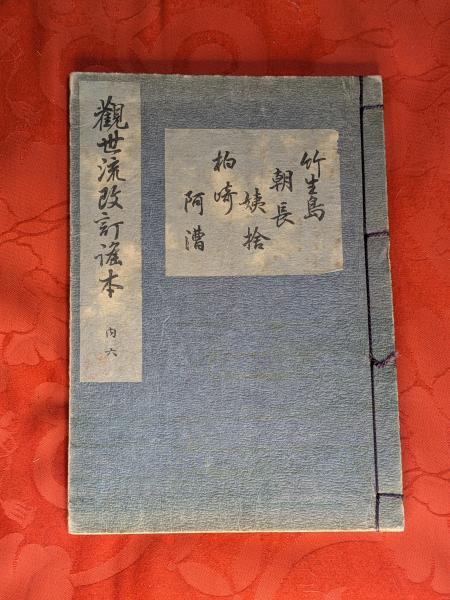 觀世流改訂謠本
内六
竹生島
朝長
姨捨
柏崎
阿漕